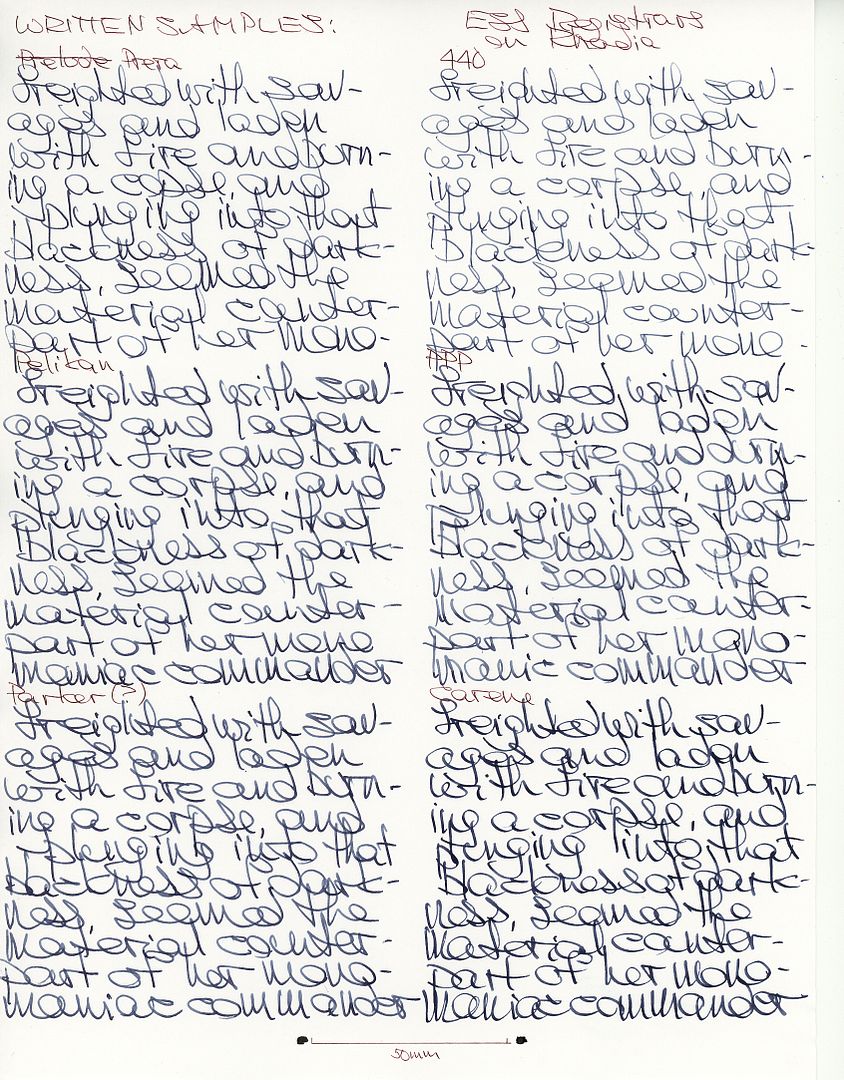 WRITTEN SAMPLES:
ESS Registrars
on Rhodia
Prelude Prera
freighted with sav-
ages and laden
with fire and burn-
ing a copse, and
plunging into that
blackness of dark-
ness, seemed the
material counter-
part of her mono-
Pelikan
freighted with sav-
ages and laden
with fire and burn-
ing a corpse, and
plunging into that
blackness of dark-
ness, seemed the
material counter-
part of her mono
maniac commander
Parker (?)
freighted with sav-
ages and laden
with fire and burn-
ing a corpse, and
plunging into that
blackness of dark-
ness, seemed the
material counter-
part of her mono-
maniac commander
440
freighted with sav-
ages and laden
with fire and burn-
ing a corpse, and
plunging into that
blackness of dark-
ness, seemed the
material counter-
part of her mono-
freighted with sav-
ages and laden
with fire and burn-
ing a corpse, and
plunging into that
blackness of dark-
ness, seemed the
material counter-
part of her mono-
manic commander
Carene
freighted with sav-
ages and laden
with fire and burn-
ing a corpse, and
plunging into that
blackness of dark-
ness, seemed the
material counter-
part of her mono-
maniac commander
50mm